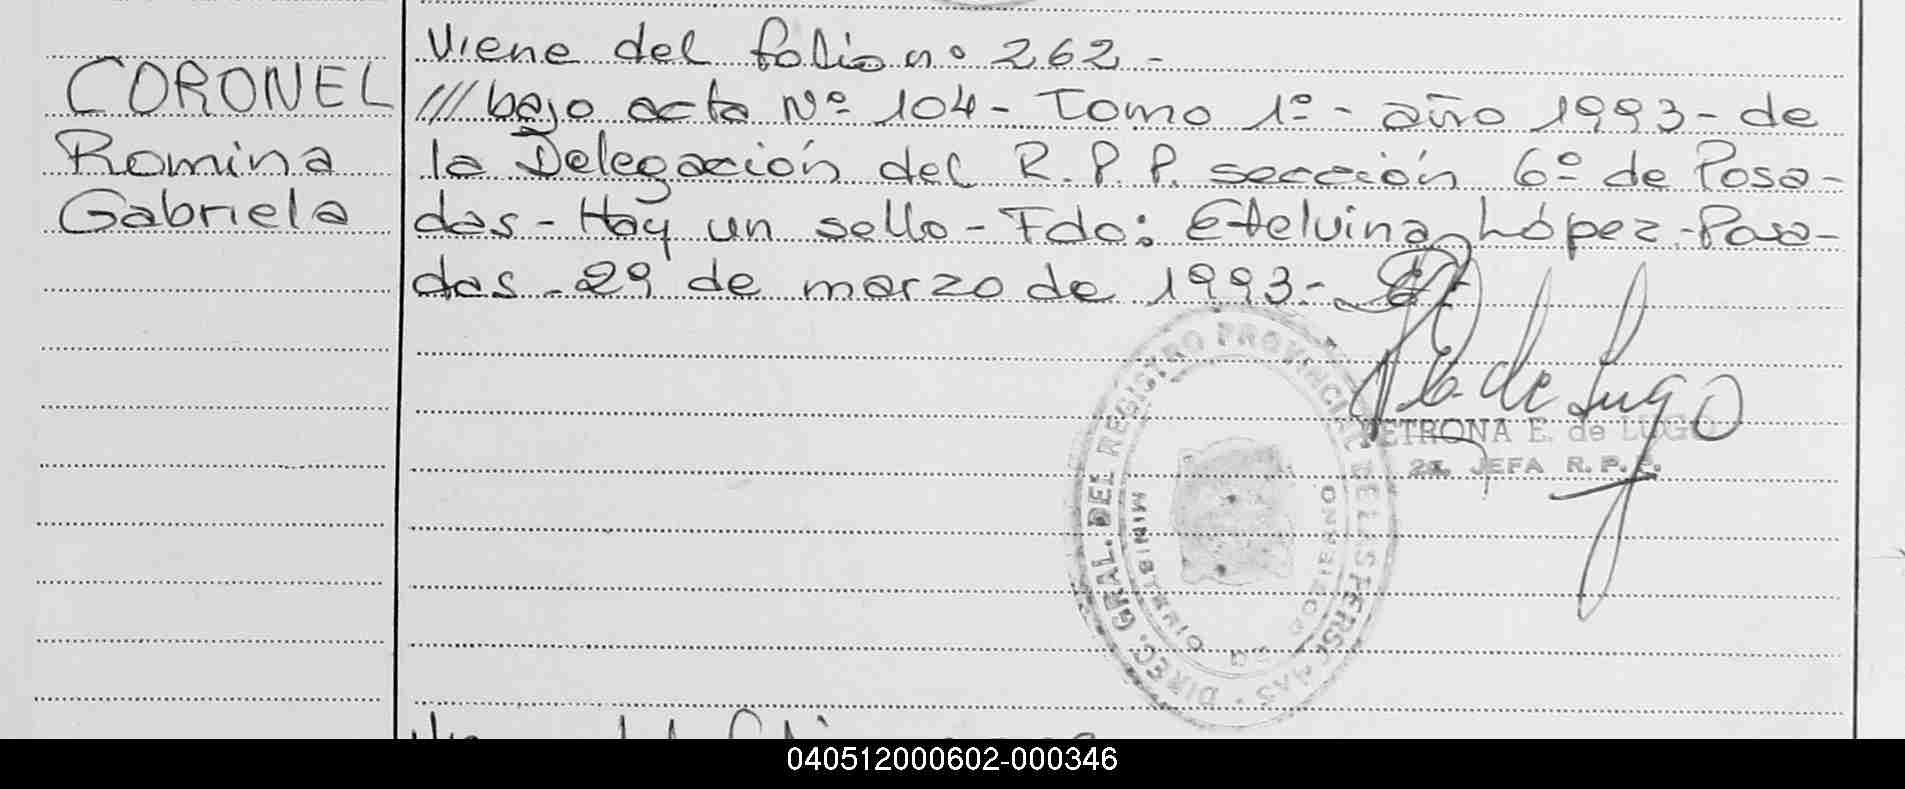 CORONEL
Romina
Gabriela
Viene del folio nº 262-
///bajo acta Nº 104- Tomo 1º- año 1993- de
la Delegación del R.P.P. sección 6º de Posa-
das- Hay un sello- Fdo: Etelvina López-Posa-
das-29 de marzo de 1993-
E. de Lugo
PETRONA E. de LUGO
2a. JEFA R.P.P.
DIREC. GRAL. DEL REGISTRO PROVINCIAL DE LAS PERSONAS
MINISTERIO DE GOBIERNO
040512000602-000346